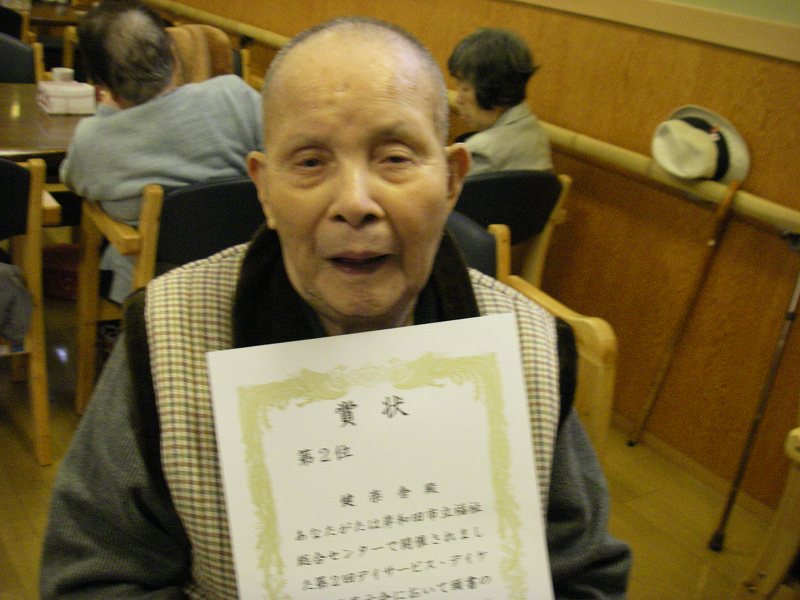 賞状
第2位
健楽舎殿
あなたがたは岸和田市立福祉
総合センターで開催されまし
た第2回デイサービス・デイケ
示会において頭書の